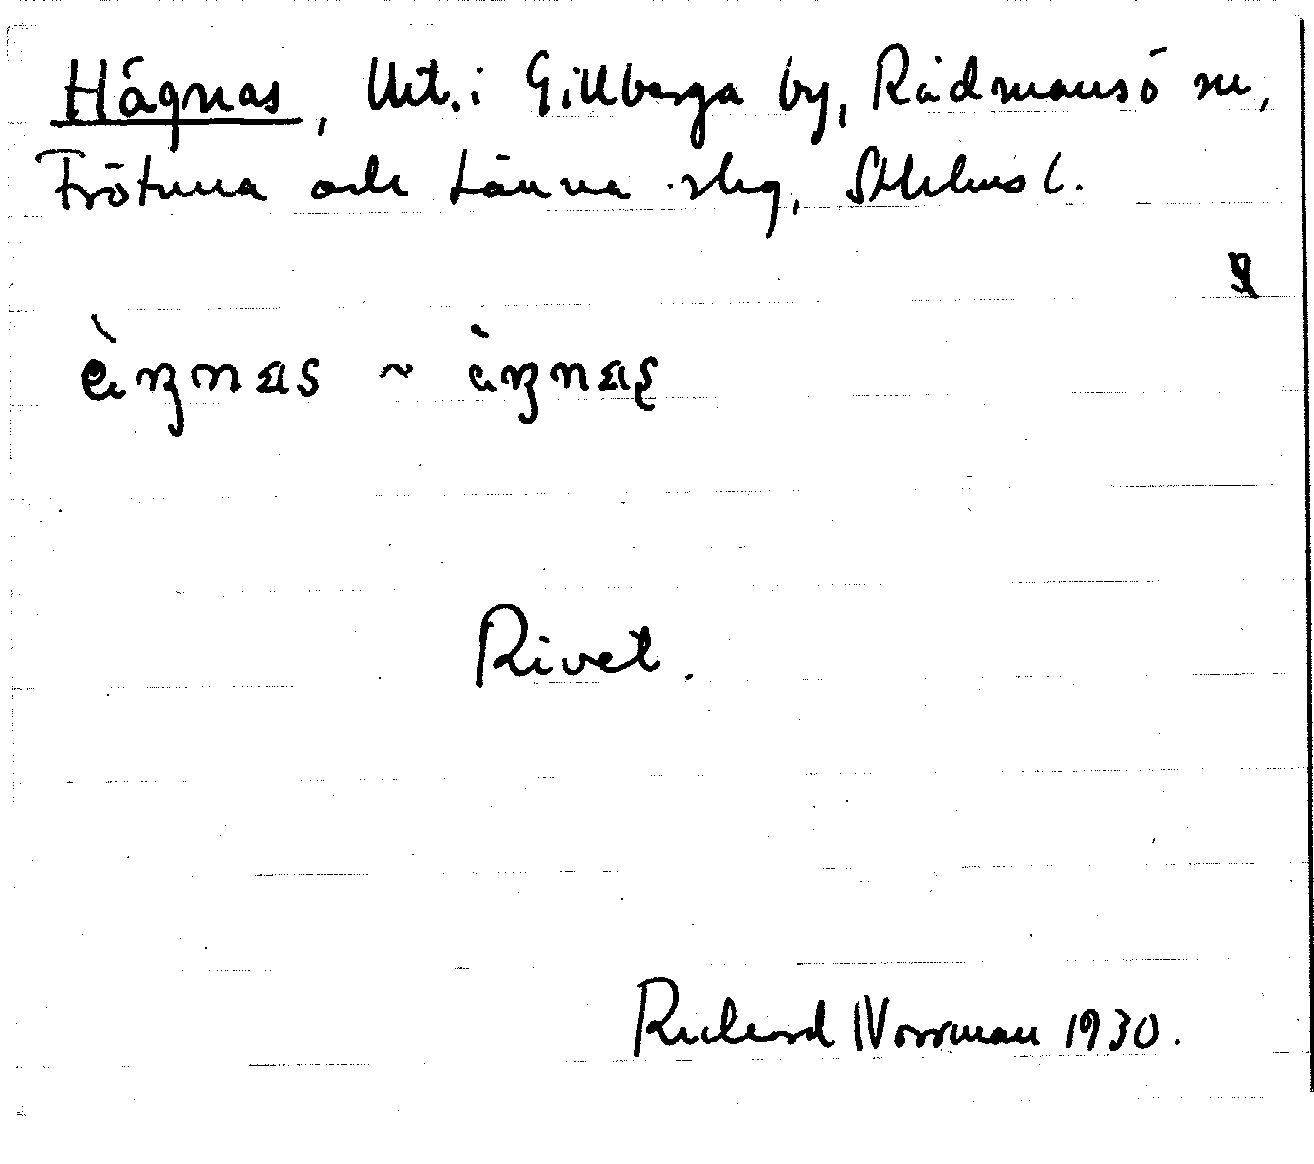 Hågnas, Utt. i Gillberga by, Rådmansö sn,
Frötuna och Länna slg, Sthlms l.
Rivet.
Richard Norrman 1930.